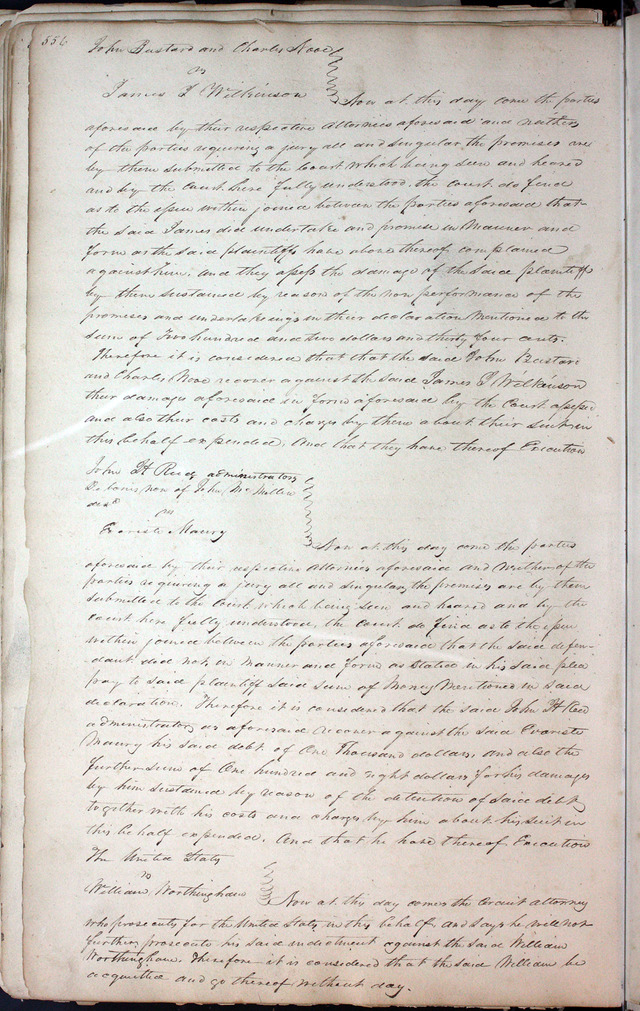 556
John Bustard and Charles
vs
James L Wilkinson Now at this day come the parties
aforesaid by their respective Attornies aforesaid and neither
of the parties requiring a jury all and singular the premises are
by them submitted to the Court which being seen and heared
and by the Court here fully understood, the Court do find
as to the issue within joined between the parties aforesaid that
the said James did undertake and promise in Manner and
form as the said plaintiffs have above thereof complained
against him. And they assess the damage of the said plaintiffs
by them sustained by reason of the non performance of the
promises and undertakings in their declaration Mentioned to the
sum of Two hundred and five dollars and thirty four cents.
Therefore it is considered that that the said John Bustard
and Charles recover against the said James L Wilkinson
their damages aforesaid in form aforesaid by the Court assessed
and also their costs and charges by them about their suit in
this behalf expended, And that they have thereof Execution
John H Reed administrators
De bonis non of John McMillin
decd
vs
Evariste Maury Now at this day come the parties
aforesaid by their respective attornies aforesaid and neither of the
parties requiring a jury all and singular the premises are by them
submitted to the Court, which being seen and heared and by the
Court here fully understood, the Court do find as to the issue
within joined between the parties aforesaid that the said defen-
dant did not in Manner and form as Stated in his said plea
pay to said plaintiff said sum of Money Mentioned in said
declaration. Therefore it is considered that the said John H Reed
administrators as aforesaid recover against the said Evariste
Maury his said debt of One Thousand dollars, and also the
further sum of One hundred and eight dollars for his damages
by him sustained by reason of the detention of said debt,
together with his costs and charges by him about his suit in
this behalf expended. And that he have thereof Execution
The United States
vs
William Worthingham Now at this day comes the Circuit attorney
who prosecutes for the United States in this behalf, and says he will not
further prosecute his said indictment against the said William
Worthingham. Therefore it is considered that the said William be
acquitted and go thereof without day.